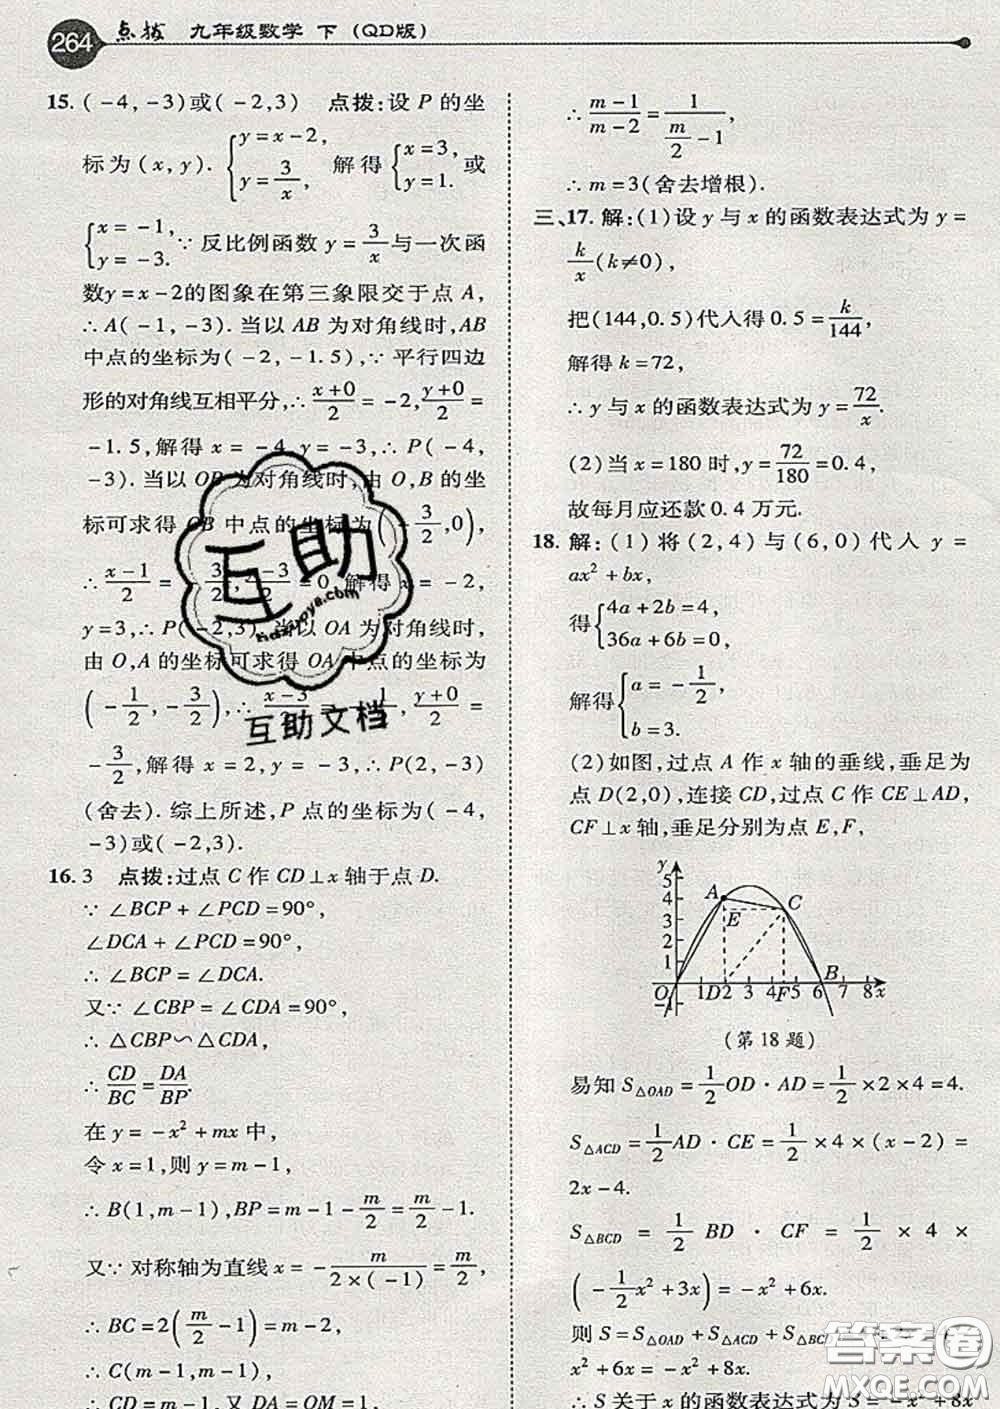 264 点拨 九年级数学 下 (QD版)
15. (-4, -3)或(-2,3) 点拨:设 P 的坐
标为(x, y). {y=x-2, y=3/x, 解得 {x=3, y=1. 或
{x=-1, y=-3. ∵反比例函数 y=3/x 与一次函
数y=x-2的图象在第三象限交于点 A,
∴A(-1, -3). 当以 AB 为对角线时, AB
中点的坐标为(-2, -1.5), ∵平行四边
形的对角线互相平分, ∴(x+0)/2=-2, (y+0)/2=
-1.5, 解得 x=-4, y=-3, ∴P(-4,
-3). 当以 OB 为对角线时, 由 O, B 的坐
标可求得 OB 中点的坐标为(-3/2, 0),
∴(x-1)/2=-3/2, (y-3)/2=0, 解得 x=-2,
y=3, ∴P(-2,3). 当以 OA 为对角线时,
由 O, A 的坐标可求得 OA 中点的坐标为
(-1/2, -3/2), ∴(x-3)/2=-1/2, (y+0)/2=
-3/2, 解得 x=2, y=-3, ∴P(2, -3)
(舍去). 综上所述, P 点的坐标为(-4,
-3)或(-2,3).
16. 3 点拨:过点 C 作 CD⊥x 轴于点 D.
∵∠BCP+∠PCD=90°,
∠DCA+∠PCD=90°,
∴∠BCP=∠DCA.
又∵∠CBP=∠CDA=90°,
∴△CBP∽△CDA,
∴CD/BC=DA/BP.
在 y=-x²+mx 中,
令 x=1, 则 y=m-1,
∴B(1, m-1), BP=m-1-m/2=m/2-1.
又∵对称轴为直线 x=-m/(2×(-1))=m/2,
∴BC=2(m/2-1)=m-2,
∴C(m-1, m-1)
∴CD=m-1, 又 DA=OM=1,
∴(m-1)/(m-2)=1/(m/2-1),
∴m=3(舍去增根).
三、17. 解:(1)设 y 与 x 的函数表达式为 y=
k/x(k≠0),
把(144,0.5)代入得 0.5=k/144,
解得 k=72,
∴y 与 x 的函数表达式为 y=72/x.
(2)当 x=180 时, y=72/180=0.4,
故每月应还款 0.4 万元.
18. 解:(1)将(2,4)与(6,0)代入 y=
ax²+bx,
得{4a+2b=4, 36a+6b=0,
解得{a=-1/2, b=3.
(2)如图,过点 A 作 x 轴的垂线,垂足为
点 D(2,0), 连接 CD, 过点 C 作 CE⊥AD,
CF⊥x 轴,垂足分别为点 E, F,
y
5
4
3
2
1
-1
A
E
C
B
O 1 D2 3 4 F5 6 7 8 x
(第18题)
易知 S△OAD=1/2 OD·AD=1/2×2×4=4.
S△ACD=1/2 AD·CE=1/2×4×(x-2)=
2x-4.
S△BCD=1/2 BD·CF=1/2×4×
(-1/2 x²+3x)=-x²+6x.
则 S=S△OAD+S△ACD+S△BCD
x²+6x=-x²+8x.
∴S 关于 x 的函数表达式为 S=-x²+8x
互助
hdzuoye.com
互助文档
答案圈
MXQE.COM